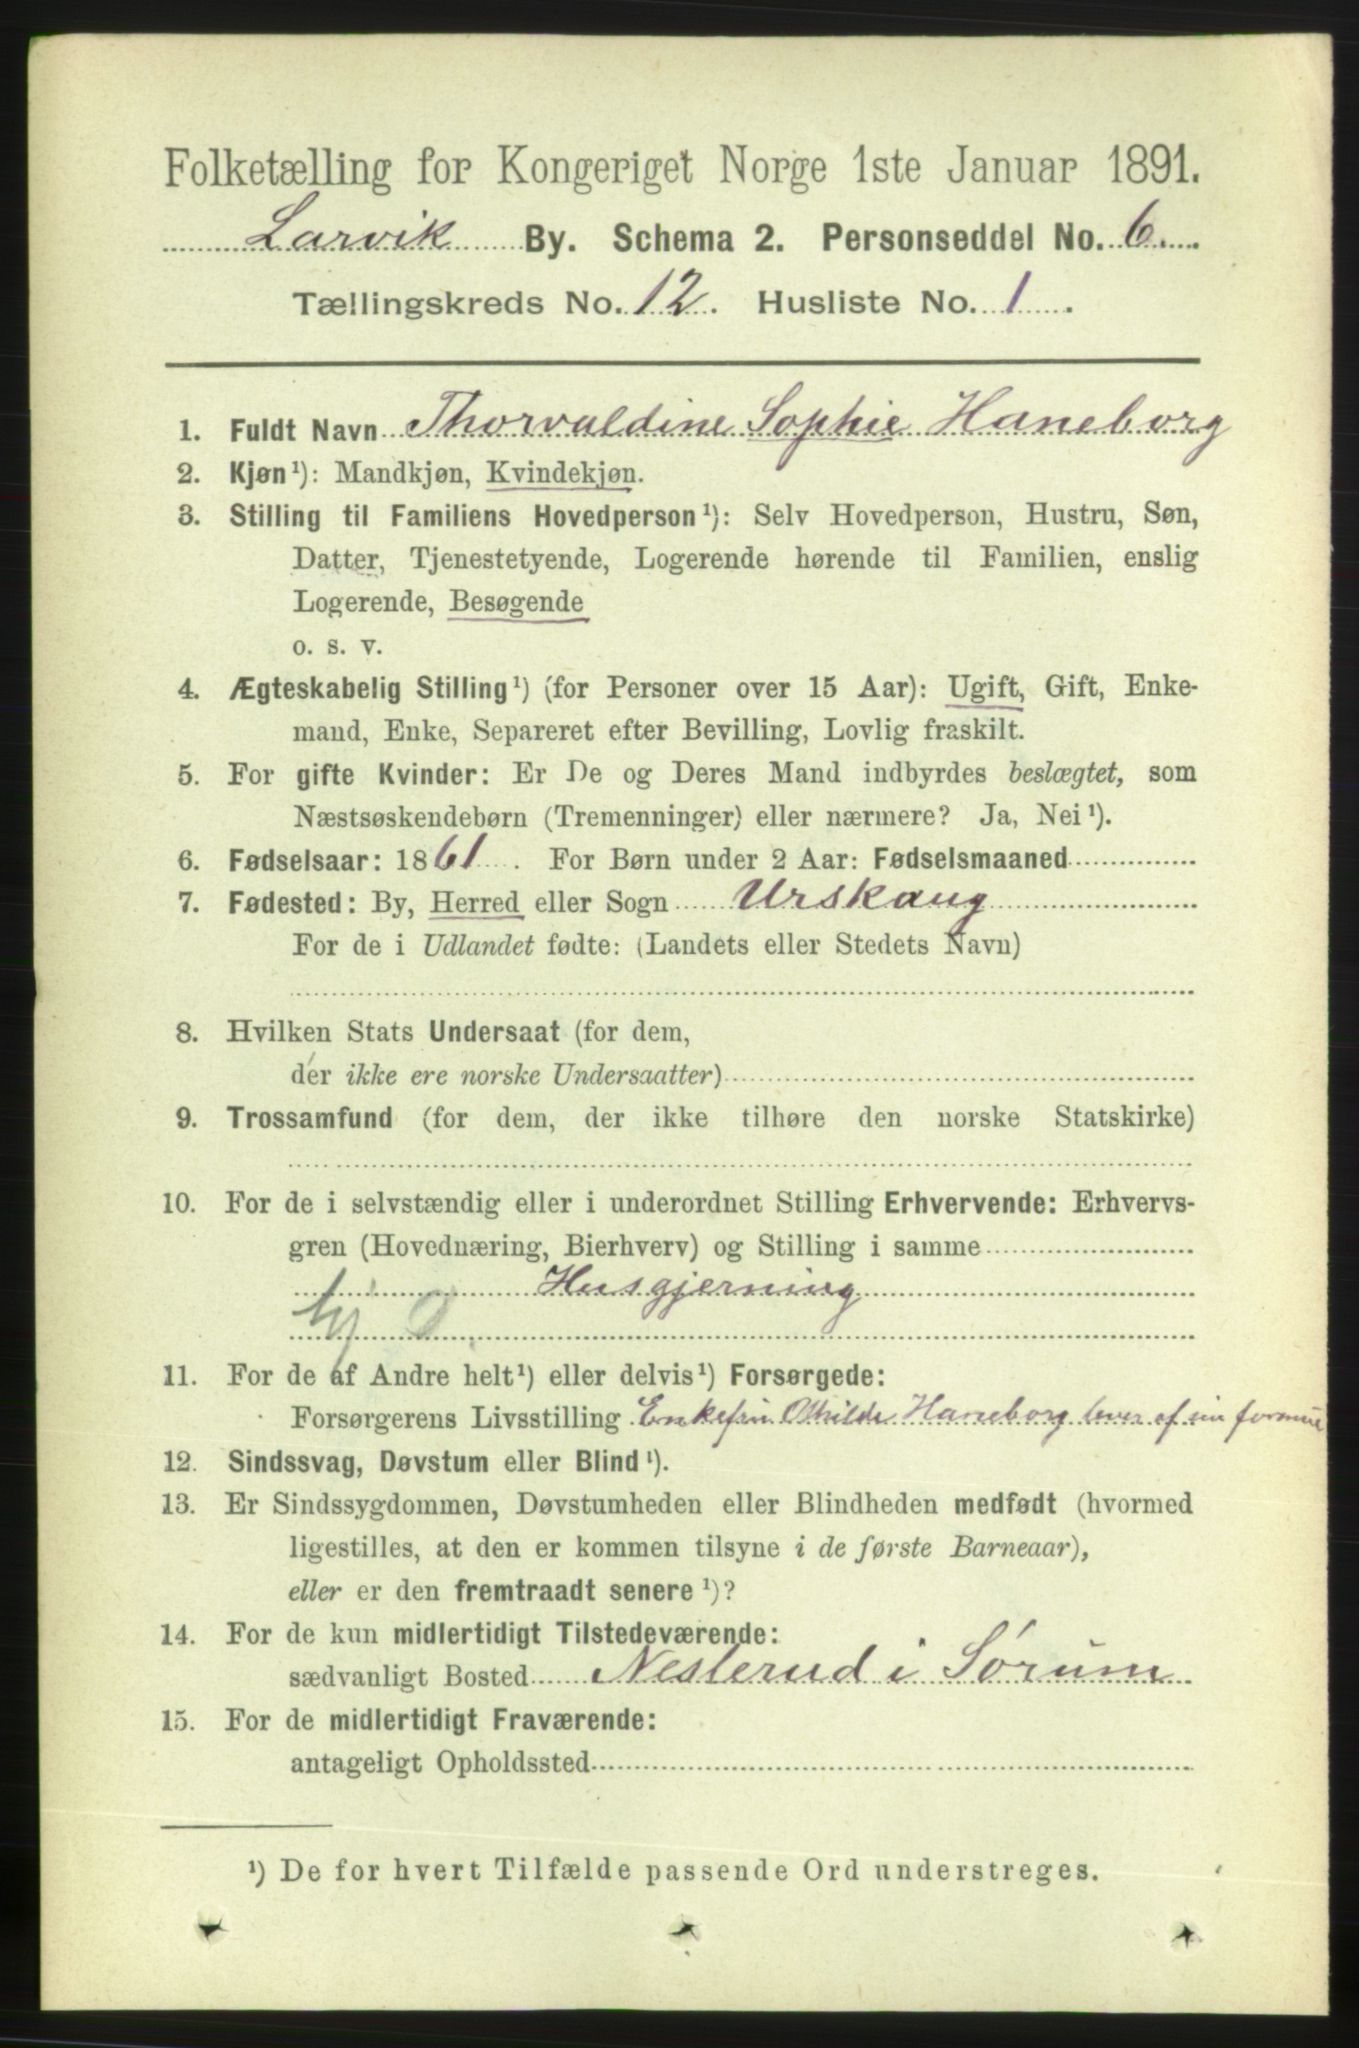 Folketælling for Kongeriget Norge 1ste Januar 1891.
Larvik By. Schema 2. Personseddel No. 6.
Tællingskreds No. 12. Husliste No. 1.
1. Fuldt Navn Thorvaldine Sophie Haneborg
2. Kjøn¹): Mandkjøn, Kvindekjøn.
3. Stilling til Familiens Hovedperson¹): Selv Hovedperson, Hustru, Søn,
Datter, Tjenestetyende, Logerende hørende til Familien, enslig
Logerende, Besøgende
o. s. v.
4. Ægteskabelig Stilling¹) (for Personer over 15 Aar): Ugift, Gift, Enke-
mand, Enke, Separeret efter Bevilling, Lovlig fraskilt.
5. For gifte Kvinder: Er De og Deres Mand indbyrdes beslægtet, som
Næstsøskendebørn (Tremenninger) eller nærmere? Ja, Nei¹).
6. Fødselsaar: 1861. For Børn under 2 Aar: Fødselsmaaned
7. Fødested: By, Herred eller Sogn Urskaug
For de i Udlandet fødte: (Landets eller Stedets Navn)
8. Hvilken Stats Undersaat (for dem,
der ikke ere norske Undersaatter)
9. Trossamfund (for dem, der ikke tilhøre den norske Statskirke)
10. For de i selvstændig eller i underordnet Stilling Erhvervende: Erhvervs-
gren (Hovednæring, Bierhverv) og Stilling i samme
Husgjerning
11. For de af Andre helt¹) eller delvis¹) Forsørgede:
Forsørgerens Livsstilling Haneborg lever af sin formue
12. Sindssvag, Døvstum eller Blind¹).
13. Er Sindssygdommen, Døvstumheden eller Blindheden medfødt (hvormed
ligestilles, at den er kommen tilsyne i de første Barneaar),
eller er den fremtraadt senere¹)?
14. For de kun midlertidigt Tilstedeværende:
sædvanligt Bosted Neslerud i Sørum
15. For de midlertidigt Fraværende:
antageligt Opholdssted
¹) De for hvert Tilfælde passende Ord understreges.